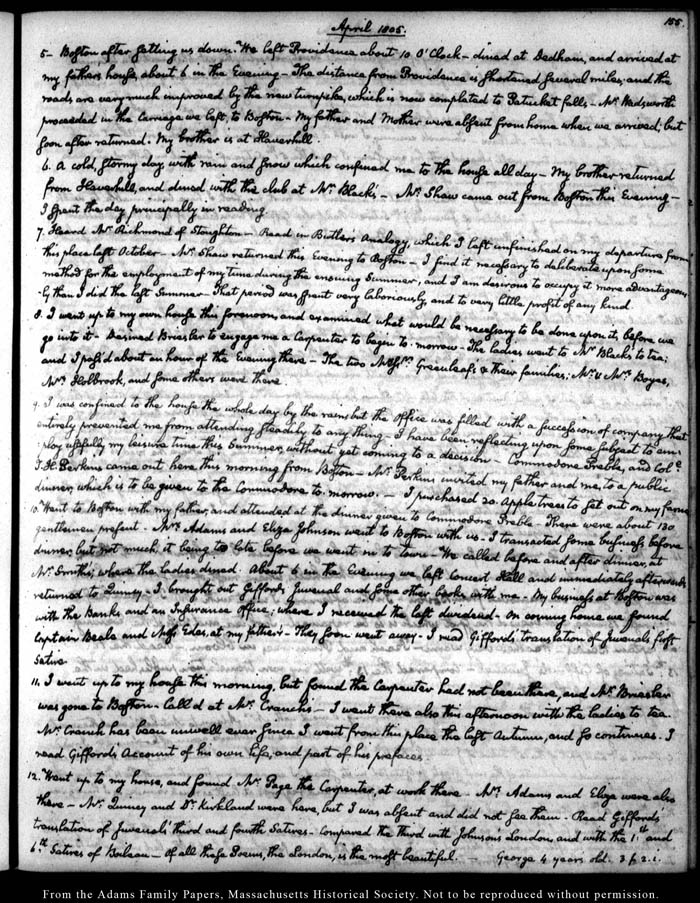 155.
April 1805.
5– Boston after setting us down. We left Providence about 10. O'Clock – dined at Dedham, and arrived at
my fathers house, about 6 in the Evening – The distance from Providence is shortened several miles; and the
roads are very much improved by the new turnpike, which is now completed to Patucket falls – Mr. Wadsworth
proceeded in the Carriage we left, to Boston – My father and Mother were absent from home when we arrived; but
soon after returned. My brother is at Haverhill.
6. A cold, stormy day, with rain and snow which confined me to the house all day – My brother returned
from Haverhill, and dined with the club at Mr. Black's – Mr. Shaw came out from Boston this Evening –
I spent the day principally in reading.
7. Heard Mr. Richmond of Stoughton – Read in Butler's Analogy, which I left unfinished on my departure from
this place last October – Mr. Shaw returned this Evening to Boston – I find it necessary to deliberate upon some
method for the employment of my time during the ensuing Summer; and I am desirous to occupy it more advantageous
-ly than I did the last Summer – That period was spent very laboriously, and to very little profit of any kind.
8. I went up to my own house this forenoon, and examined what would be necessary to be done upon it, before we
go into it – Desired Briesler to engage me a Carpenter to begin to-morrow – The ladies went to Mr. Black's to tea;
and I pass'd about an hour of the Evening there – The two Messrs. Greenleafs & their families; Mr. & Mrs. Boyes,
Mrs. Holbrook, and some others were there.
9. I was confined to the house the whole day by the rain; but the Office was filled with a succession of company that
entirely prevented me from attending steadily to any thing – I have been reflecting upon some subject to em-
ploy usefully my leisure time this Summer, without yet coming to a decision – Commodore Preble, and Coll.
T. H. Perkins came out here this morning from Boston – Mr. Perkins invited my father and me, to a public
dinner, which is to be given to the Commodore to-morrow. – I purchased 20. Apple trees to set out on my farm.
10. Went to Boston with my father, and attended at the dinner given to Commodore Preble – There were about 130
gentlemen present. – Mrs. Adams and Eliza Johnson went to Boston with us – I transacted some business before
dinner, but not much, it being so late before we went in to town – We called before and after dinner, at
Mr. Smith's; where the ladies dined. About 6 in the Evening we left Concert Hall and immediately afterwards
returned to Quincy – I brought out Giffords Juvenal and some other books with me – My business at Boston was
with the Banks and an Insurance office; where I received the last dividend – On coming home we found
Captain Beale and Miss Edes, at my father's – They soon went away – I read Gifford's translation of Juvenal's first
Satire.
11. I went up to my house this morning, but found the Carpenter had not been there, and Mr. Briesler
was gone to Boston – Call'd at Mr. Cranch's – I went there also this afternoon with the ladies to tea.
Mr. Cranch has been unwell ever since I went from this place the last Autumn, and so continues. I
read Gifford's Account of his own life, and part of his prefaces.
12. Went up to my house, and found Mr. Page the Carpenter, at work there – Mrs. Adams and Eliza were also
there – Mr. Quincy and Dr. Kirkland were here, but I was absent and did not see them – Read Giffords
translation of Juvenals' third and fourth Satires – Compared the third with Johnson's London, and with the 1st. and
6th. Satires of Boileau – Of all these Poems, the London, is the most beautiful. – George 4 years old. 3 f. 2. i.
From the Adams Family Papers, Massachusetts Historical Society. Not to be reproduced without permission.